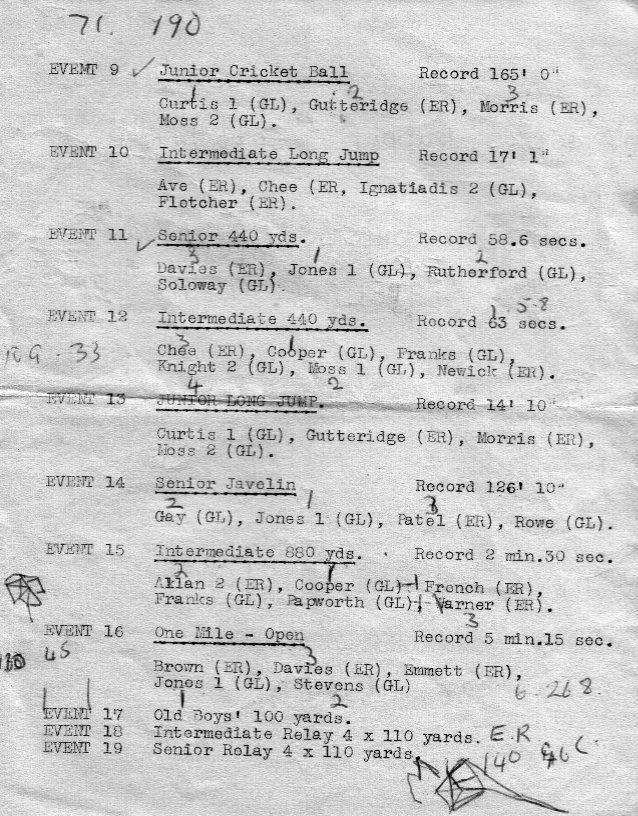 71. 190
EVENT 9 ✓ Junior Cricket Ball Record 165' 0"
1 2 3
Curtis 1 (GL), Gutteridge (ER), Morris (ER),
Moss 2 (GL).
EVENT 10 Intermediate Long Jump Record 17' 1"
Ave (ER), Chee (ER, Ignatiadis 2 (GL),
Fletcher (ER).
EVENT 11 ✓ Senior 440 yds. Record 58.6 secs.
3 1 2
Davies (ER), Jones 1 (GL), Rutherford (GL),
Soloway (GL).
1 5·8
EVENT 12 Intermediate 440 yds. Record 63 secs.
33 3 1
Chee (ER), Cooper (GL), Franks (GL),
Knight 2 (GL), Moss 1 (GL), Newick (ER).
4 2
EVENT 13 JUNIOR LONG JUMP. Record 14' 10"
Curtis 1 (GL), Gutteridge (ER), Morris (ER),
Moss 2 (GL).
EVENT 14 Senior Javelin Record 126' 10"
2 1 3
Gay (GL), Jones 1 (GL), Patel (ER), Rowe (GL).
EVENT 15 Intermediate 880 yds. Record 2 min.30 sec.
2 1
Allan 2 (ER), Cooper (GL), French (ER),
Franks (GL), Papworth (GL), Warner (ER).
3
EVENT 16 One Mile - Open Record 5 min.15 sec.
45 3
Brown (ER), Davies (ER), Emmett (ER),
Jones 1 (GL), Stevens (GL)
1 2 6·268.
EVENT 17 Old Boys' 100 yards.
EVENT 18 Intermediate Relay 4 x 110 yards. E.R
EVENT 19 Senior Relay 4 x 110 yards.
140